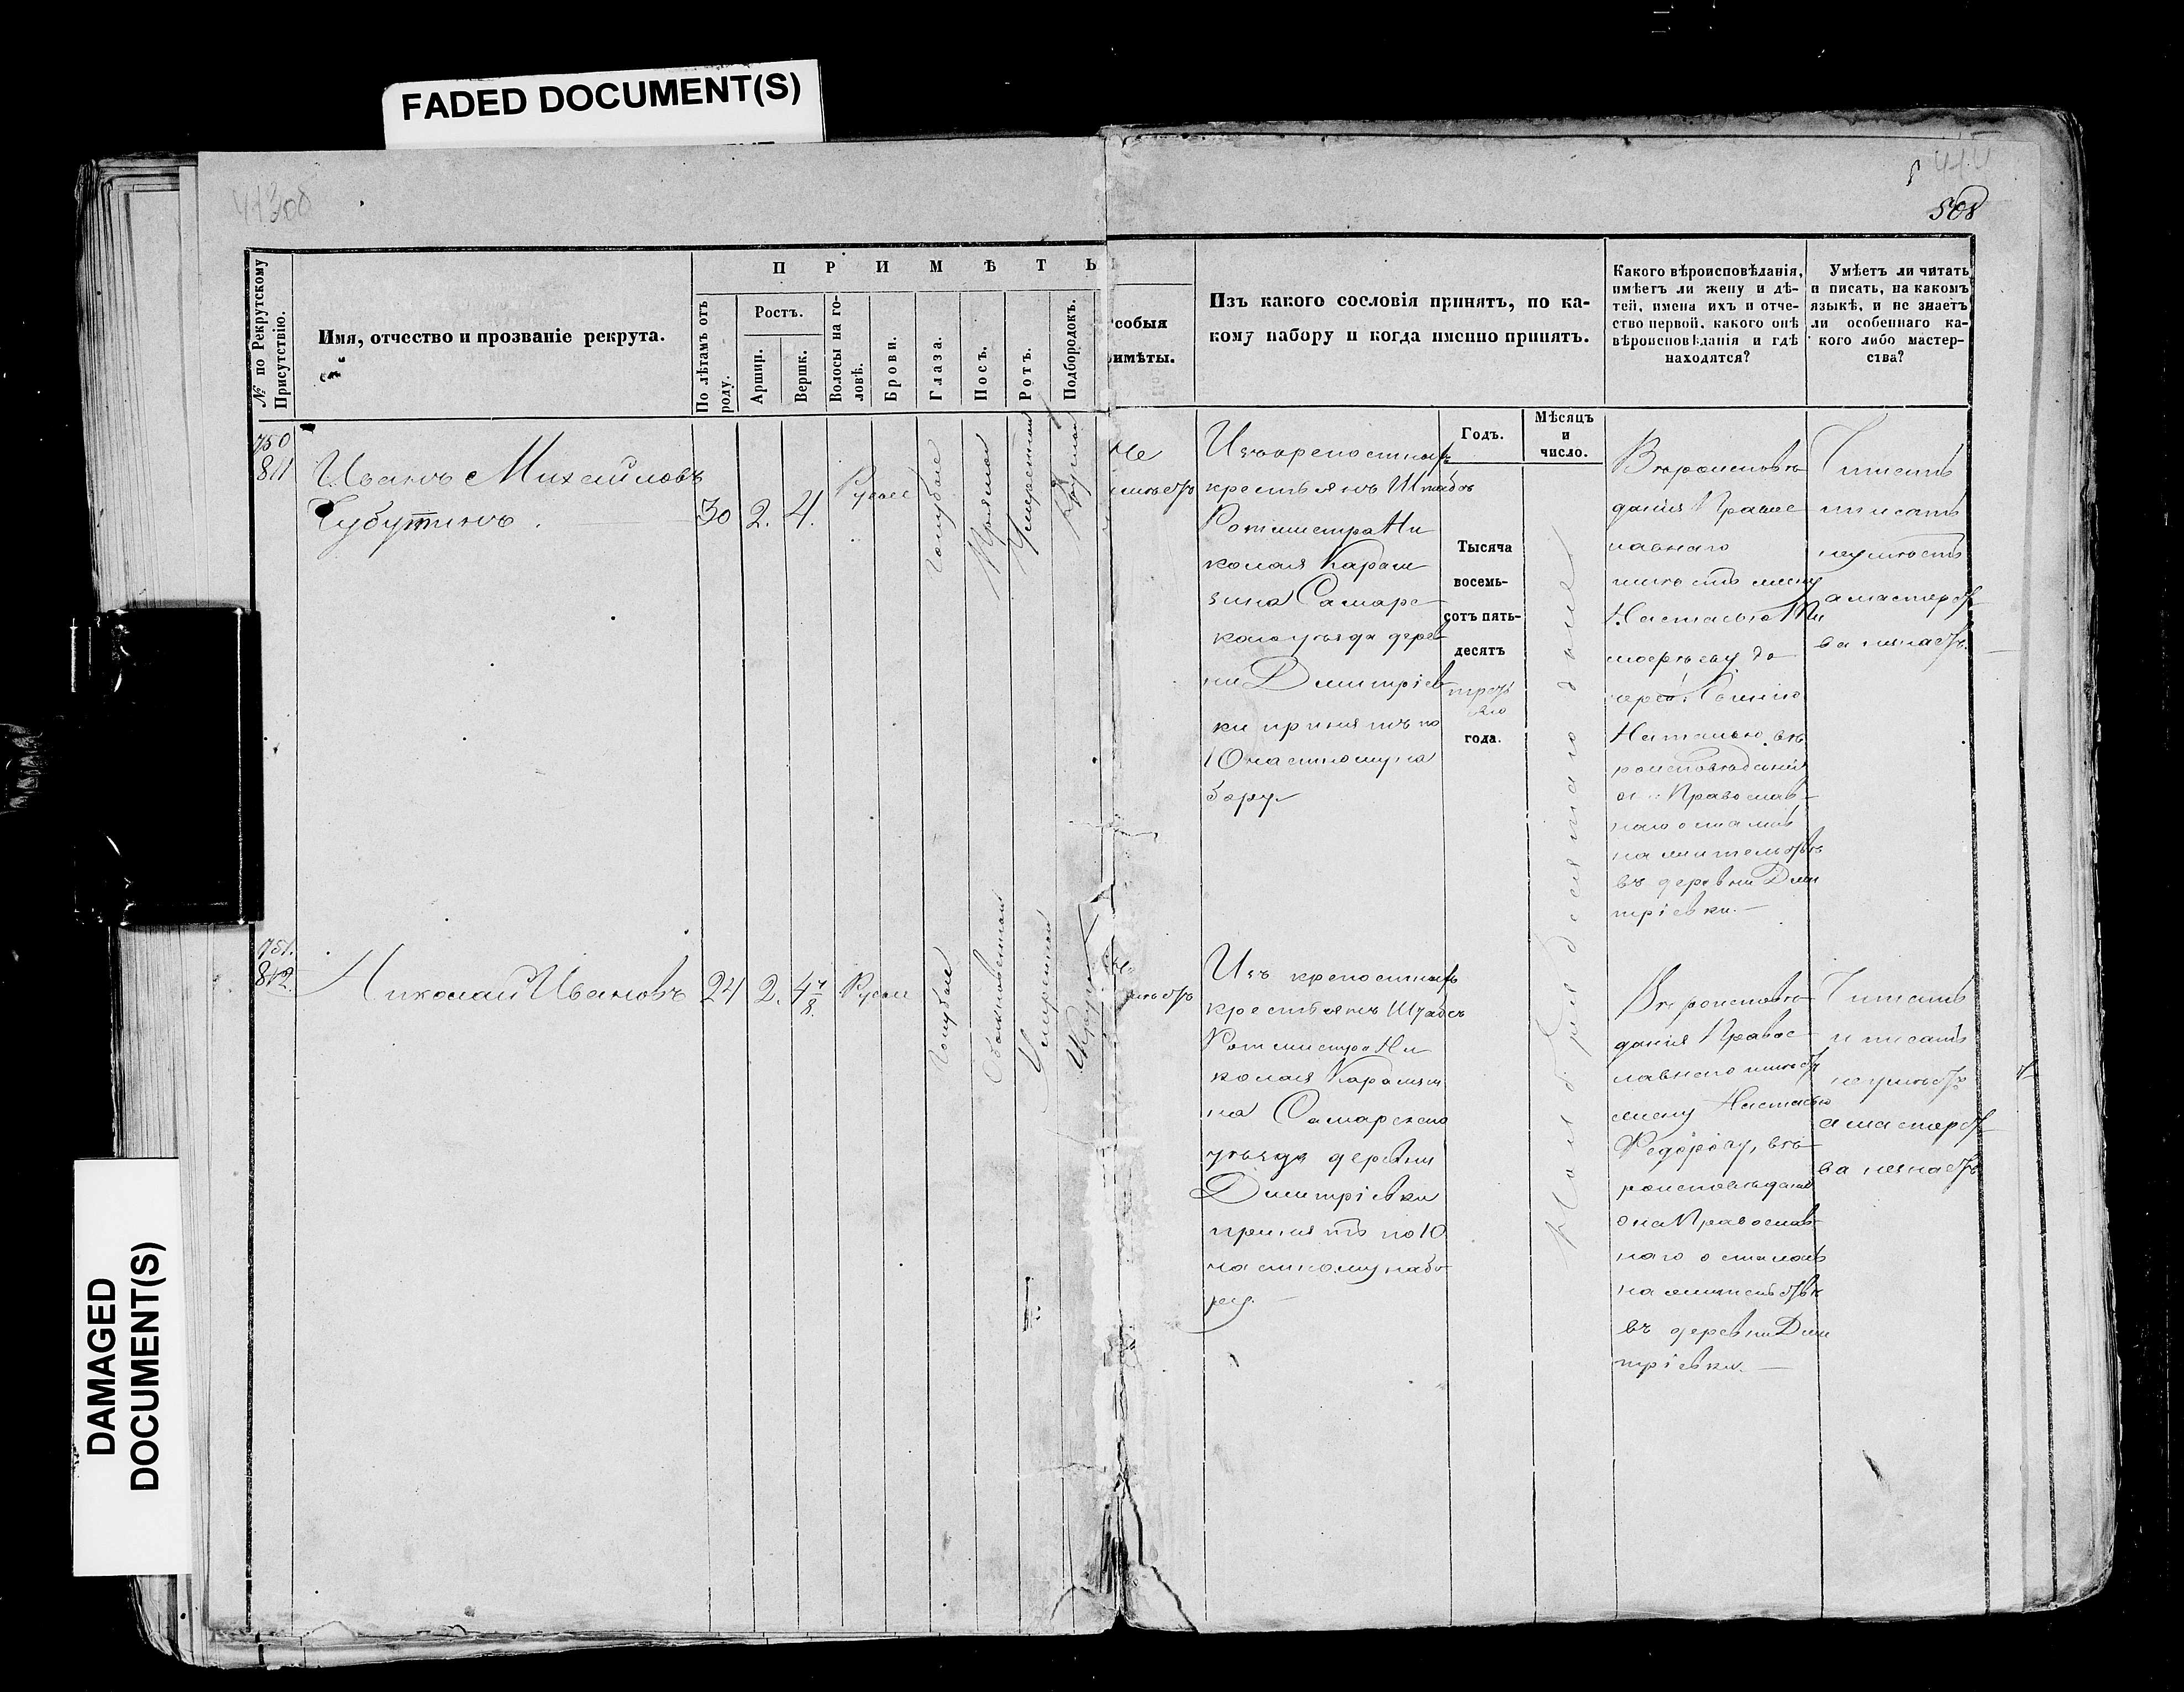 FADED DOCUMENT(S)
DAMAGED
DOCUMENT(S)
508
№ по Рекрутскому
Присутствію.
Имя, отчество и прозваніе рекрута.
ПРИМѢТЫ
По лѣтамъ отъ
роду.
Ростъ.
Аршир.
Вершк.
Волосы на го-
ловѣ.
Брови.
Глаза.
Носъ.
Ротъ.
Подбородокъ.
собыя
имѣты.
Изъ какого сословія принятъ, по ка-
кому набору и когда именно принятъ.
Какого вѣроисповѣданія,
имѣетъ ли жену и дѣ-
тей, имена ихъ и отче-
ство первой, какого онѣ
вѣроисповѣданія и гдѣ
находятся?
Умѣетъ ли читать
и писать, на какомъ
языкѣ, и не знаетъ
ли особеннаго ка-
кого либо мастер-
ства?
Годъ.
Мѣсяцъ
и
число.
750
811
Иванъ Михайловъ
Чубуткинъ.
30
2.
4.
Русые
Голубые
Прямой
Умѣренный
Круглой
Не
имѣетъ
Изъ крепостныхъ
крестьянъ Штабсъ
Ротмистра Ни
колая Карам
зина Самарс
каго уѣзда дерев
ни Дмитріев
ки принятъ по
10 частному на
бору
Тысяча
восемь-
сотъ пять-
десятъ
третьяго
года.
Ноября десятаго дня
Вѣроисповѣ
данія Правос
лавнаго
имѣетъ жену
Настасью Ти
мофѣеву до
черей
Наталью, вѣ
роисповѣданія
Православ-
наго остались
на жительствѣ
въ деревни Дми
тріевки.
Читать
писать
неумѣетъ
а мастерст
ва незнаетъ.
751.
812.
Николай Ивановъ
24
2.
4 7/8.
Русые
Голубые
Обыкновенной
Умѣренной
Круглой
имѣетъ
Изъ крепостныхъ
крестьянъ Штабсъ
Ротмистра Ни
колая Карамзи
на Самарскаго
уѣзда деревни
Дмитріевки
принятъ по 10
частному набо
ру.
Вѣроисповѣ
данія Правос
лавнаго имѣетъ
жену Настасью
Федорову, вѣ
роисповѣданія
она Православ
наго осталась
на жительствѣ
въ деревни Дми
тріевки.
Читать
и писать
неумѣетъ
а мастерст
ва незнаетъ